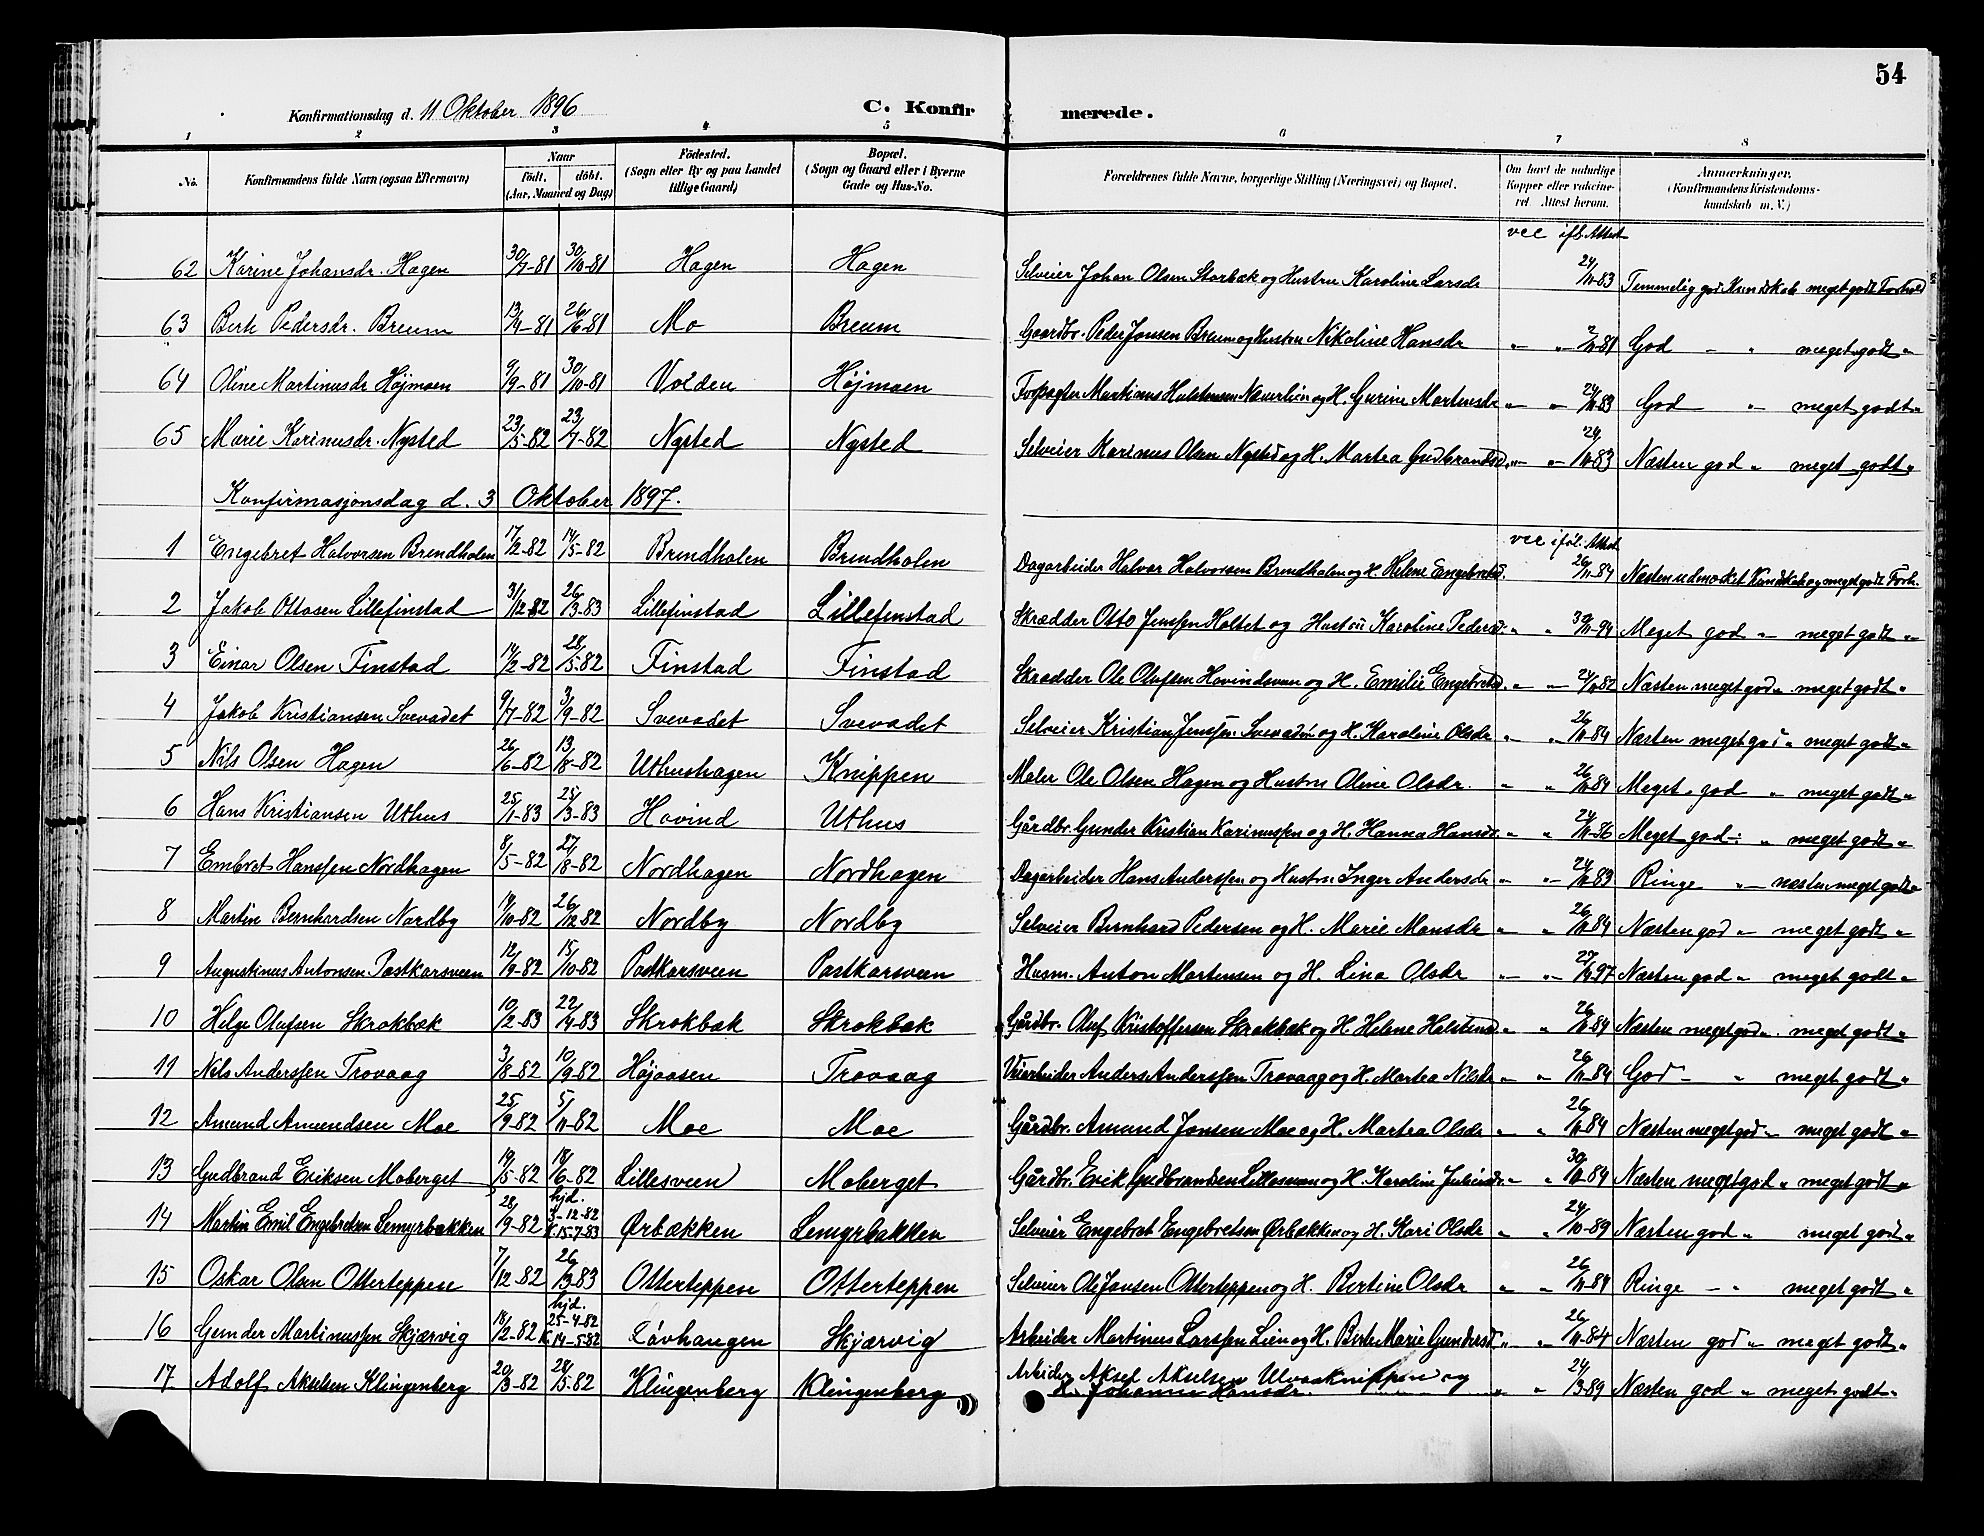 54
Konfirmationsdag d. 11 Oktober 1896 C. Konfirmerede.
1 2 3 4 5 6 7 8
No. Konfirmandens fulde Navn (ogsaa Efternavn) Naar födt. döbt. (Aar, Maaned og Dag) Födested. (Sogn eller By og paa Landet tillige Gaard) Bopæl. (Sogn og Gaard eller i Byerne Gade og Hus-No. Forældrenes fulde Navne, borgerlige Stilling (Næringsvei) og Bopæl. Om havt de naturlige Kopper eller vaccineret. Attest herom. Anmærkninger. (Konfirmandens Kristendomskundskab m. V.)
vac. ifl. Attest
62 Karine Johansdr. Hagen 30/7-81 30/10-81 Hagen Hagen Selveier Johan Olsen Storbæk og Hustru Karoline Larsdr 24/10-83 Temmelig god Kundskab meget godt Forhold
63 Berte Pedersdr. Breum 13/4-81 26/6-81 Mo Breum Gaardbr. Peder Jonsen Breum og Hustru Nikoline Hansdr " " -81 God - " meget godt "
64 Oline Martinusdr Højmoen 9/9-81 30/10-81 Volden Højmoen Forpagter Martinus Halstensen Næverlien og H. Gurine Martinsdr " " 24/10-83 God " meget godt "
65 Marie Karinusdr. Nysted 23/5-82 23/7-82 Nysted Nysted Selveier Karinus Olsen Nysted og H. Martea Gudbrandsd. " " 24/10-83 Næsten god " meget godt "
Konfirmasjonsdag d. 3 Oktober 1897.
vac. iføl. Attest
1 Engebret Halvorsen Brendholen 17/2-82 14/5-82 Brendholen Brendholen Dagarbeider Halvor Halvorsen Brendholen og H. Helene Engebretsd. 26/11-84 Næsten udmærket Kundskab og meget godt Forh.
2 Jakob Ottosen Lillefinstad 31/12-82 26/3-83 Lillefinstad Lillefinstad Skrædder Otto Jenssen Holtet og Hustru Karoline Pedersd. " " 30/11-94 Meget god " meget godt "
3 Einar Olsen Finstad 14/2-82 28/5-82 Finstad Finstad Skrædder Ole Olufsen Hovindsveen og H. Emilie Engebretsd. " " -82 Næsten meget god " meget godt "
4 Jakob Kristiansen Svevadet 9/7-82 3/9-82 Svevadet Svevadet Selveier Kristian Jenssen Svevadet og H. Karoline Olsdr " " 26/11-84 Næsten meget god " meget godt "
5 Nils Olsen Hagen 26/6-82 13/8-82 Uthushagen Knippen Maler Ole Olsen Hagen og Hustru Oline Olsdr. " " 26/11-84 Meget god " meget godt "
6 Hans Kristiansen Uthus 25/1-83 25/3-83 Hovind Uthus Gårdbr. Gunder Kristian Karinussen og H. Hanna Hansd. " " Meget god " meget godt "
7 Embret Hanssen Nordhagen 8/5-82 27/8-82 Nordhagen Nordhagen Dagarbeider Hans Anderssen og Hustru Inger Andersdr " " 24/10-83 Ringe " næsten meget godt "
8 Martin Bernhardsen Nordby 14/10-82 26/12-82 Nordby Nordby Selveier Bernhard Pedersen og H. Marie Mansdr " " 26/11-84 Næsten god " meget godt "
9 Augustinus Antonsen Postkarsveen 12/9-82 15/10-82 Postkarsveen Postkarsveen Husm. Anton Martensen og H. Lina Olsdr " " 27/9-97 Næsten god " meget godt "
10 Helge Olufsen Skrokbæk 10/2-83 22/4-83 Skrokbæk Skrokbæk Gårdbr. Oluf Kristoffersen Skrokbæk og H. Helene Halstensd " " 26/11-84 Næsten meget god " meget godt "
11 Nils Anderssen Trovaag 3/8-82 10/9-82 Højaasen Trovaag Veiarbeider Anders Anderssen Trovaag og H. Martea Nilsdr " " 26/11-84 God - " meget godt "
12 Amund Amundsen Moe 25/9-82 5/11-82 Moe Moe Gårdbr. Amund Jonsen Moe og H. Martea Olsdr " " 26/11-84 Næsten meget god " meget godt "
13 Gudbrand Eriksen Moberget 19/5-82 18/6-82 Lillesveen Moberget Gårdbr. Erik Gudbrandsen Lillesveen og H. Karoline Juliusdr " " 30/11-84 Næsten meget god " meget godt "
14 Martin Emil Engebretsen Lemyrbækken 28/9-82 hjd. 3-12-82 K. 15-7-83 Ørbækken Lemyrbækken Selveier Engebret Engebretsen Ørbækken og H. Kari Olsdr " " 24/10-89 Næsten god " meget godt "
15 Oskar Olsen Otterteppen 7/12-82 26/3-83 Otterteppen Otterteppen Selveier Ole Jonsen Otterteppen og H. Bertine Olsdr " " 26/11-84 Ringe - " meget godt "
16 Gunder Martinussen Skjærvig 18/2-82 hjd. 25-4-82 K. 14-5-82 Løvhaugen Skjærvig Arbeider Martinus Larssen Lien og H. Berte Marie Gundersd " " 26/11-84 Næsten god " meget godt "
17 Adolf Akselsen Klingenberg 20/3-82 28/5-82 Klingenberg Klingenberg Arbeider Aksel Akselsen Ulvaaknippen og H. Johanne Hansdr. " " 24/3-89 Næsten god " meget godt "